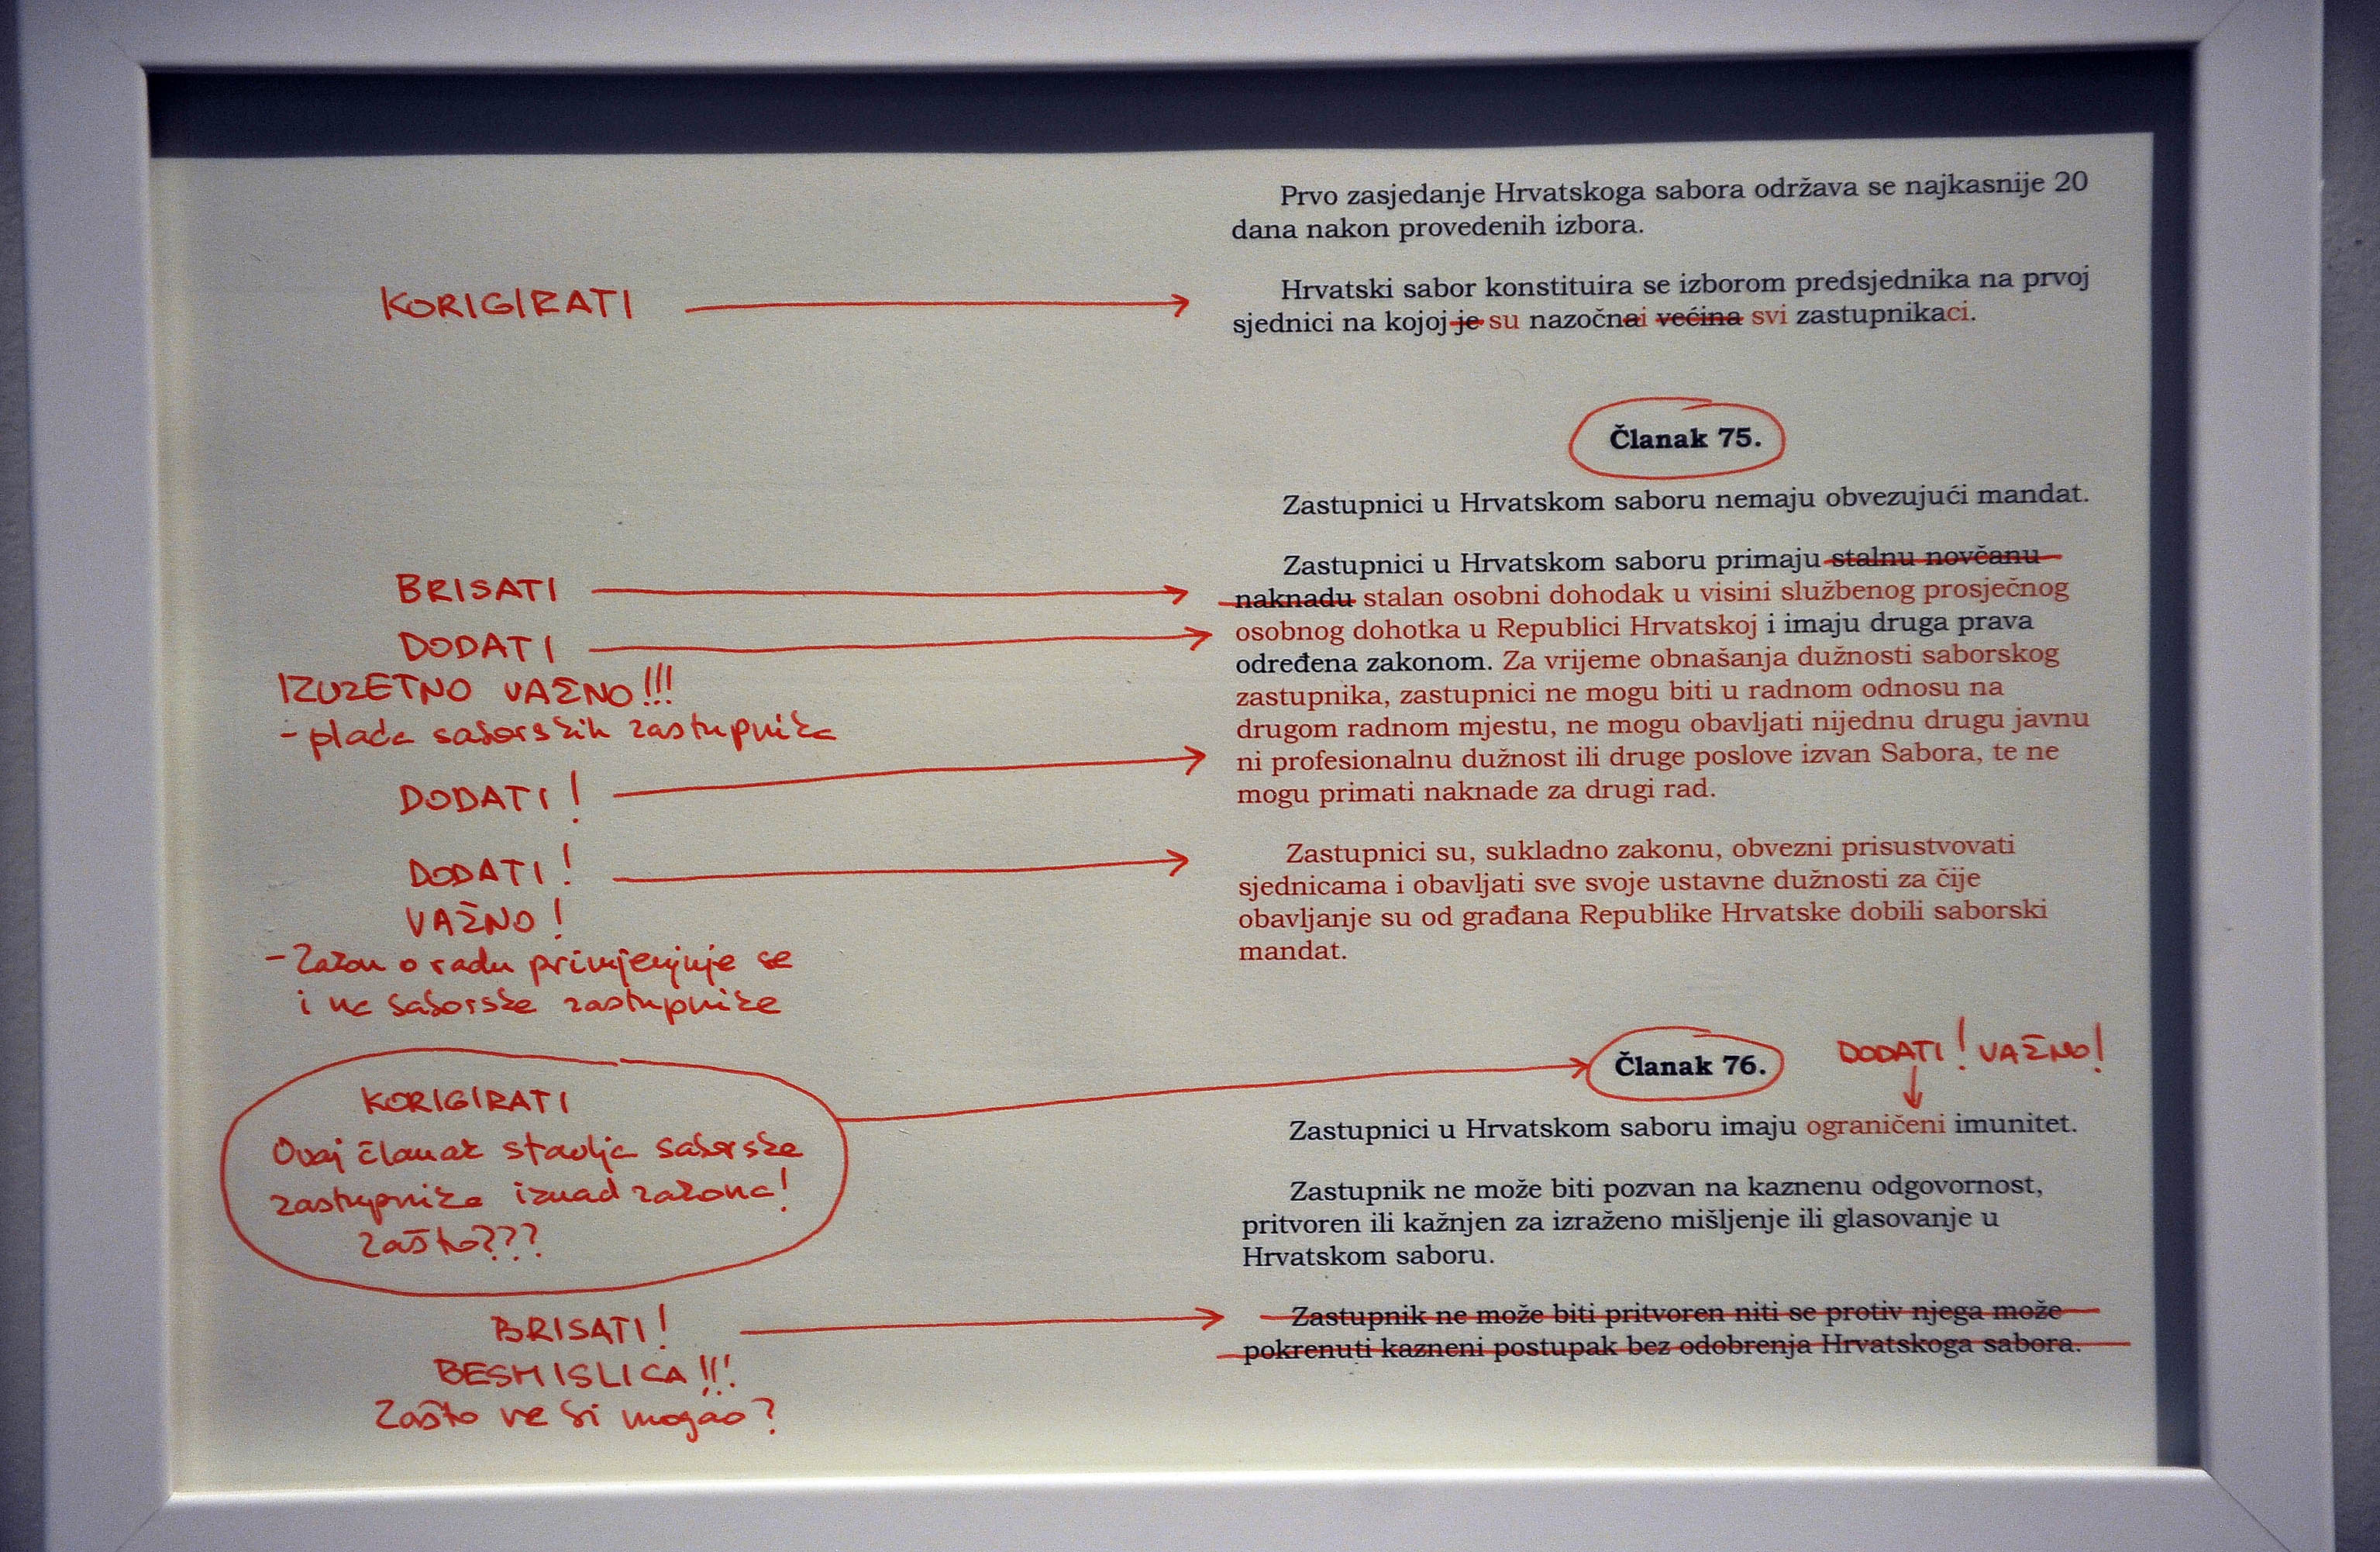 Prvo zasjedanje Hrvatskoga sabora održava se najkasnije 20
dana nakon provedenih izbora.
KORIGIRATI
Hrvatski sabor konstituira se izborom predsjednika na prvoj
sjednici na kojoj je su nazočnai većina svi zastupnikaci.
Članak 75.
Zastupnici u Hrvatskom saboru nemaju obvezujući mandat.
Zastupnici u Hrvatskom saboru primaju stalnu novčanu
naknadu stalan osobni dohodak u visini službenog prosječnog
osobnog dohotka u Republici Hrvatskoj i imaju druga prava
određena zakonom. Za vrijeme obnašanja dužnosti saborskog
zastupnika, zastupnici ne mogu biti u radnom odnosu na
drugom radnom mjestu, ne mogu obavljati nijednu drugu javnu
ni profesionalnu dužnost ili druge poslove izvan Sabora, te ne
mogu primati naknade za drugi rad.
BRISATI
DODATI
IZUZETNO VAŽNO!!!
- plaća saborskih zastupnika
DODATI!
Zastupnici su, sukladno zakonu, obvezni prisustvovati
sjednicama i obavljati sve svoje ustavne dužnosti za čije
obavljanje su od građana Republike Hrvatske dobili saborski
mandat.
DODATI!
VAŽNO!
- Zakon o radu primjenjuje se
i na saborske zastupnike
Članak 76.
DODATI! VAŽNO!
Zastupnici u Hrvatskom saboru imaju ograničeni imunitet.
Zastupnik ne može biti pozvan na kaznenu odgovornost,
pritvoren ili kažnjen za izraženo mišljenje ili glasovanje u
Hrvatskom saboru.
KORIGIRATI
Ovaj članak stavlja saborske
zastupnike iznad zakona!
Zašto???
Zastupnik ne može biti pritvoren niti se protiv njega može
pokrenuti kazneni postupak bez odobrenja Hrvatskoga sabora.
BRISATI!
BESMISLICA!!!
Zašto ne bi mogao?